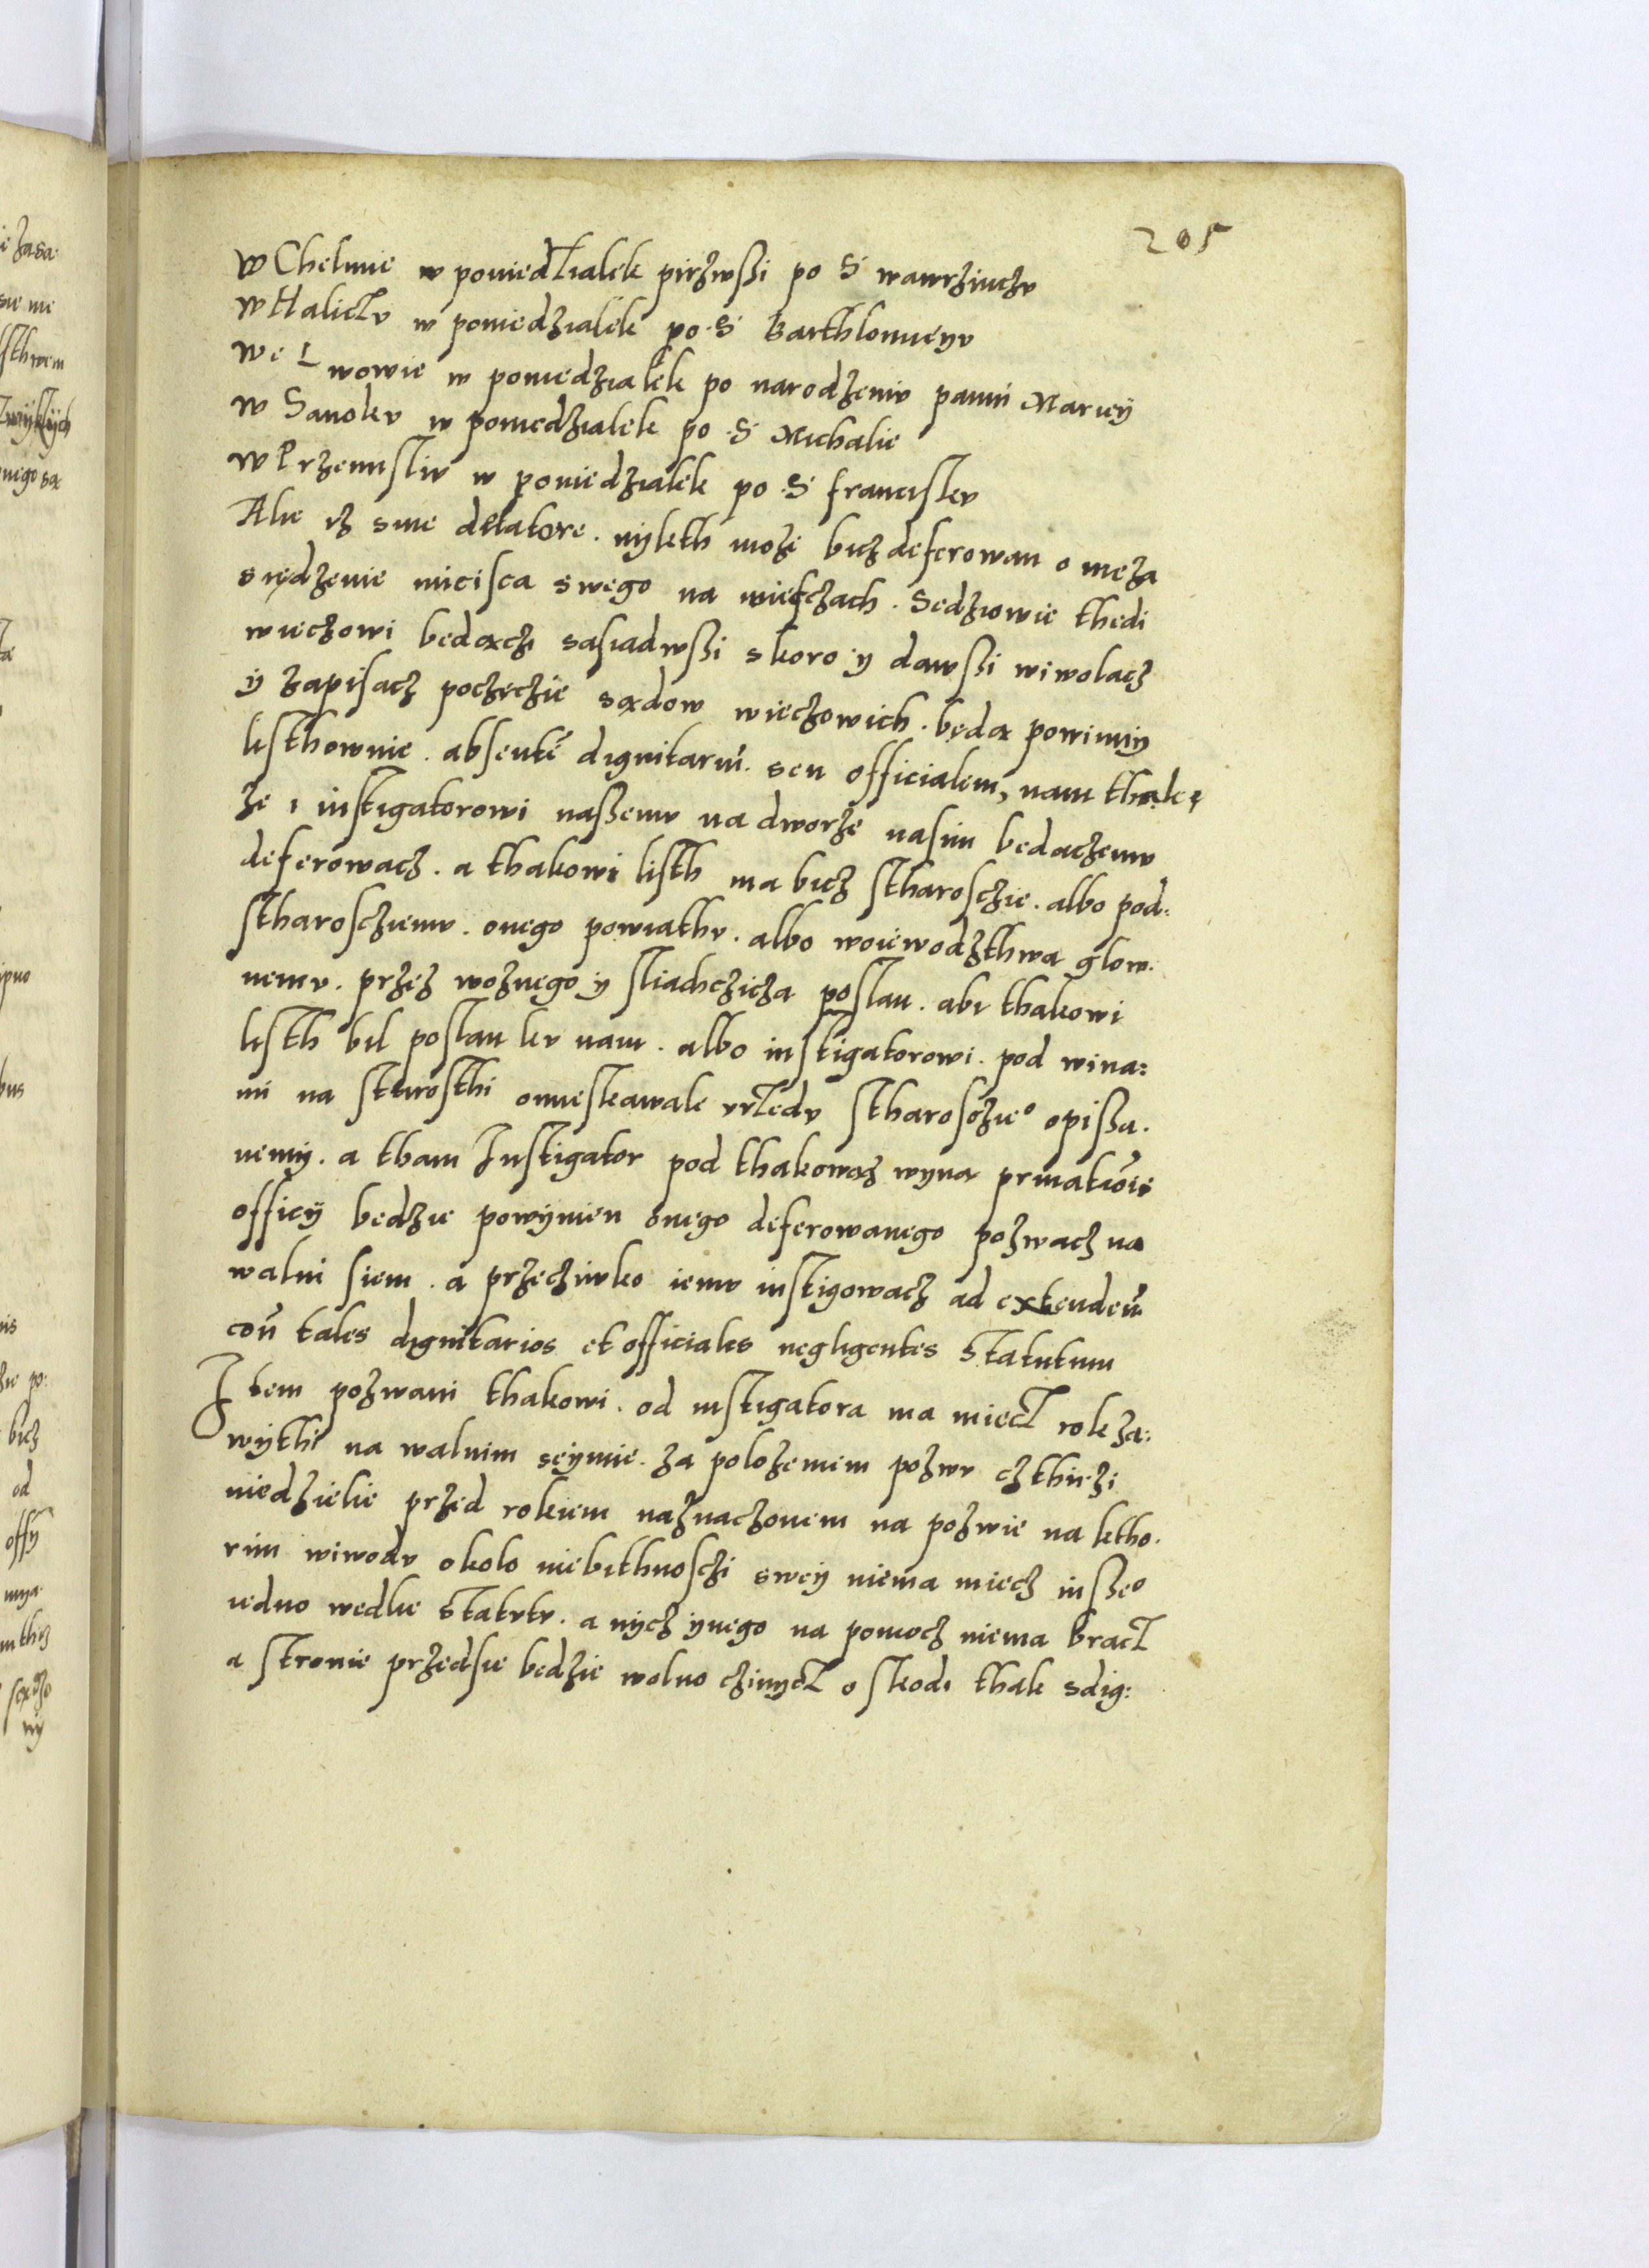 205
W Chelmie w poniedzialek pirzwssi po S wawrzinczu
W Haliczu w poniedzialek po S Barthlomieyu
We Lwowie w poniedzialek po narodzeniu panni Mariey
W Sanoku w poniedzialek po S Michalie
W Przemisliu w poniedzialek po S francisku
Alie iz sine delatore. nykth może bicz deferowan o nieza
siędzenie mieisca swego na wieczach. Sedziowie thedi
wieczowi bedącz zasiadwssi skoro y dawssi wiwolacz
y zapisacz poczęczie sądow wieczowich. będą powinny
listhownie. absentē dignitariū. seu officialem, nam thak
że i instigatorowi nassemu na dworze nasim bedaczemu
deferowacz. a thakowi listh ma bicz stharosczie. albo pod:
stharoscziemu. onego powiathu. albo woiewodzthwa glow.
nemu. przez woznego y sliachczicza poslan. abi thakowi
listh bil poslan ku nam. albo instigatorowi. pod wina:
mi na starosthi omieskawale urzedu stharosczieo opissa.
nemy. a tham Instigator pod thakowąz wyną priuatiois
officy bedzie powynien onego deferowanego pozwacz na
walni siem. a przecziwko iemu instigowacz ad extendeū
coū tales dignitarios et officiales negligentes Statutum
Item pozwani thakowi. od instigatora ma miecz rok za:
withi na walnim seymie. za polożeniem pozwu czthirzi
niedzielie przed rokiem naznaczonem na pozwie na ktho.
rim wiwodu okolo niebithnosczi swey niema miecz insseo
iedno wedlie Statutu. a nycz ynego na pomocz niema bracz
a stronie przedsie bedzie wolno czinycz o skodi thak zdig: